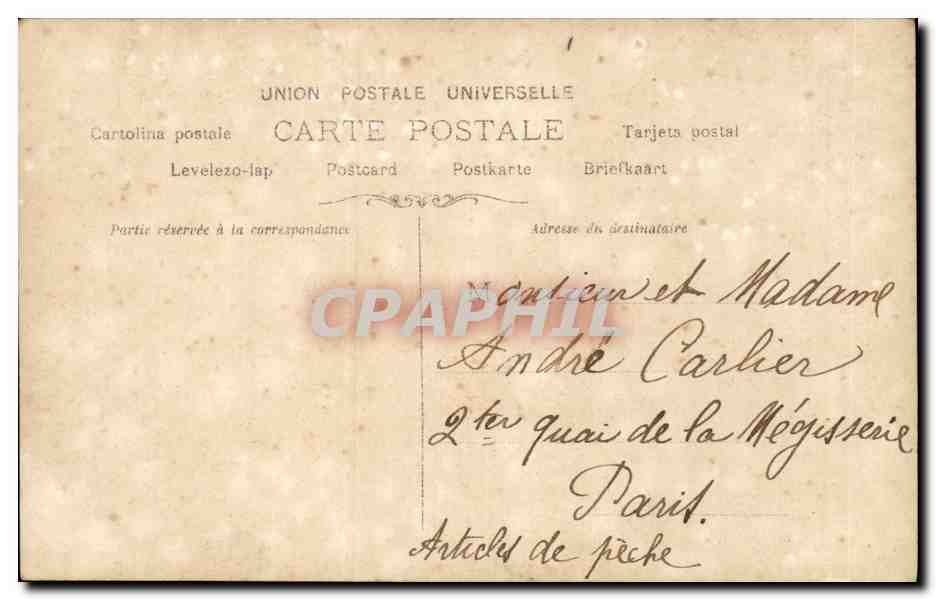 UNION POSTALE UNIVERSELLE
Cartolina postale CARTE POSTALE Tarjeta postal
Levelezo-lap Postcard Postkarte Briefkaart
Partie réservée à la correspondance Adresse du destinataire
Monsieur et Madame
CPAPHIL
André Carlier
2ter quai de la Mégisserie
Paris.
Articles de pêche